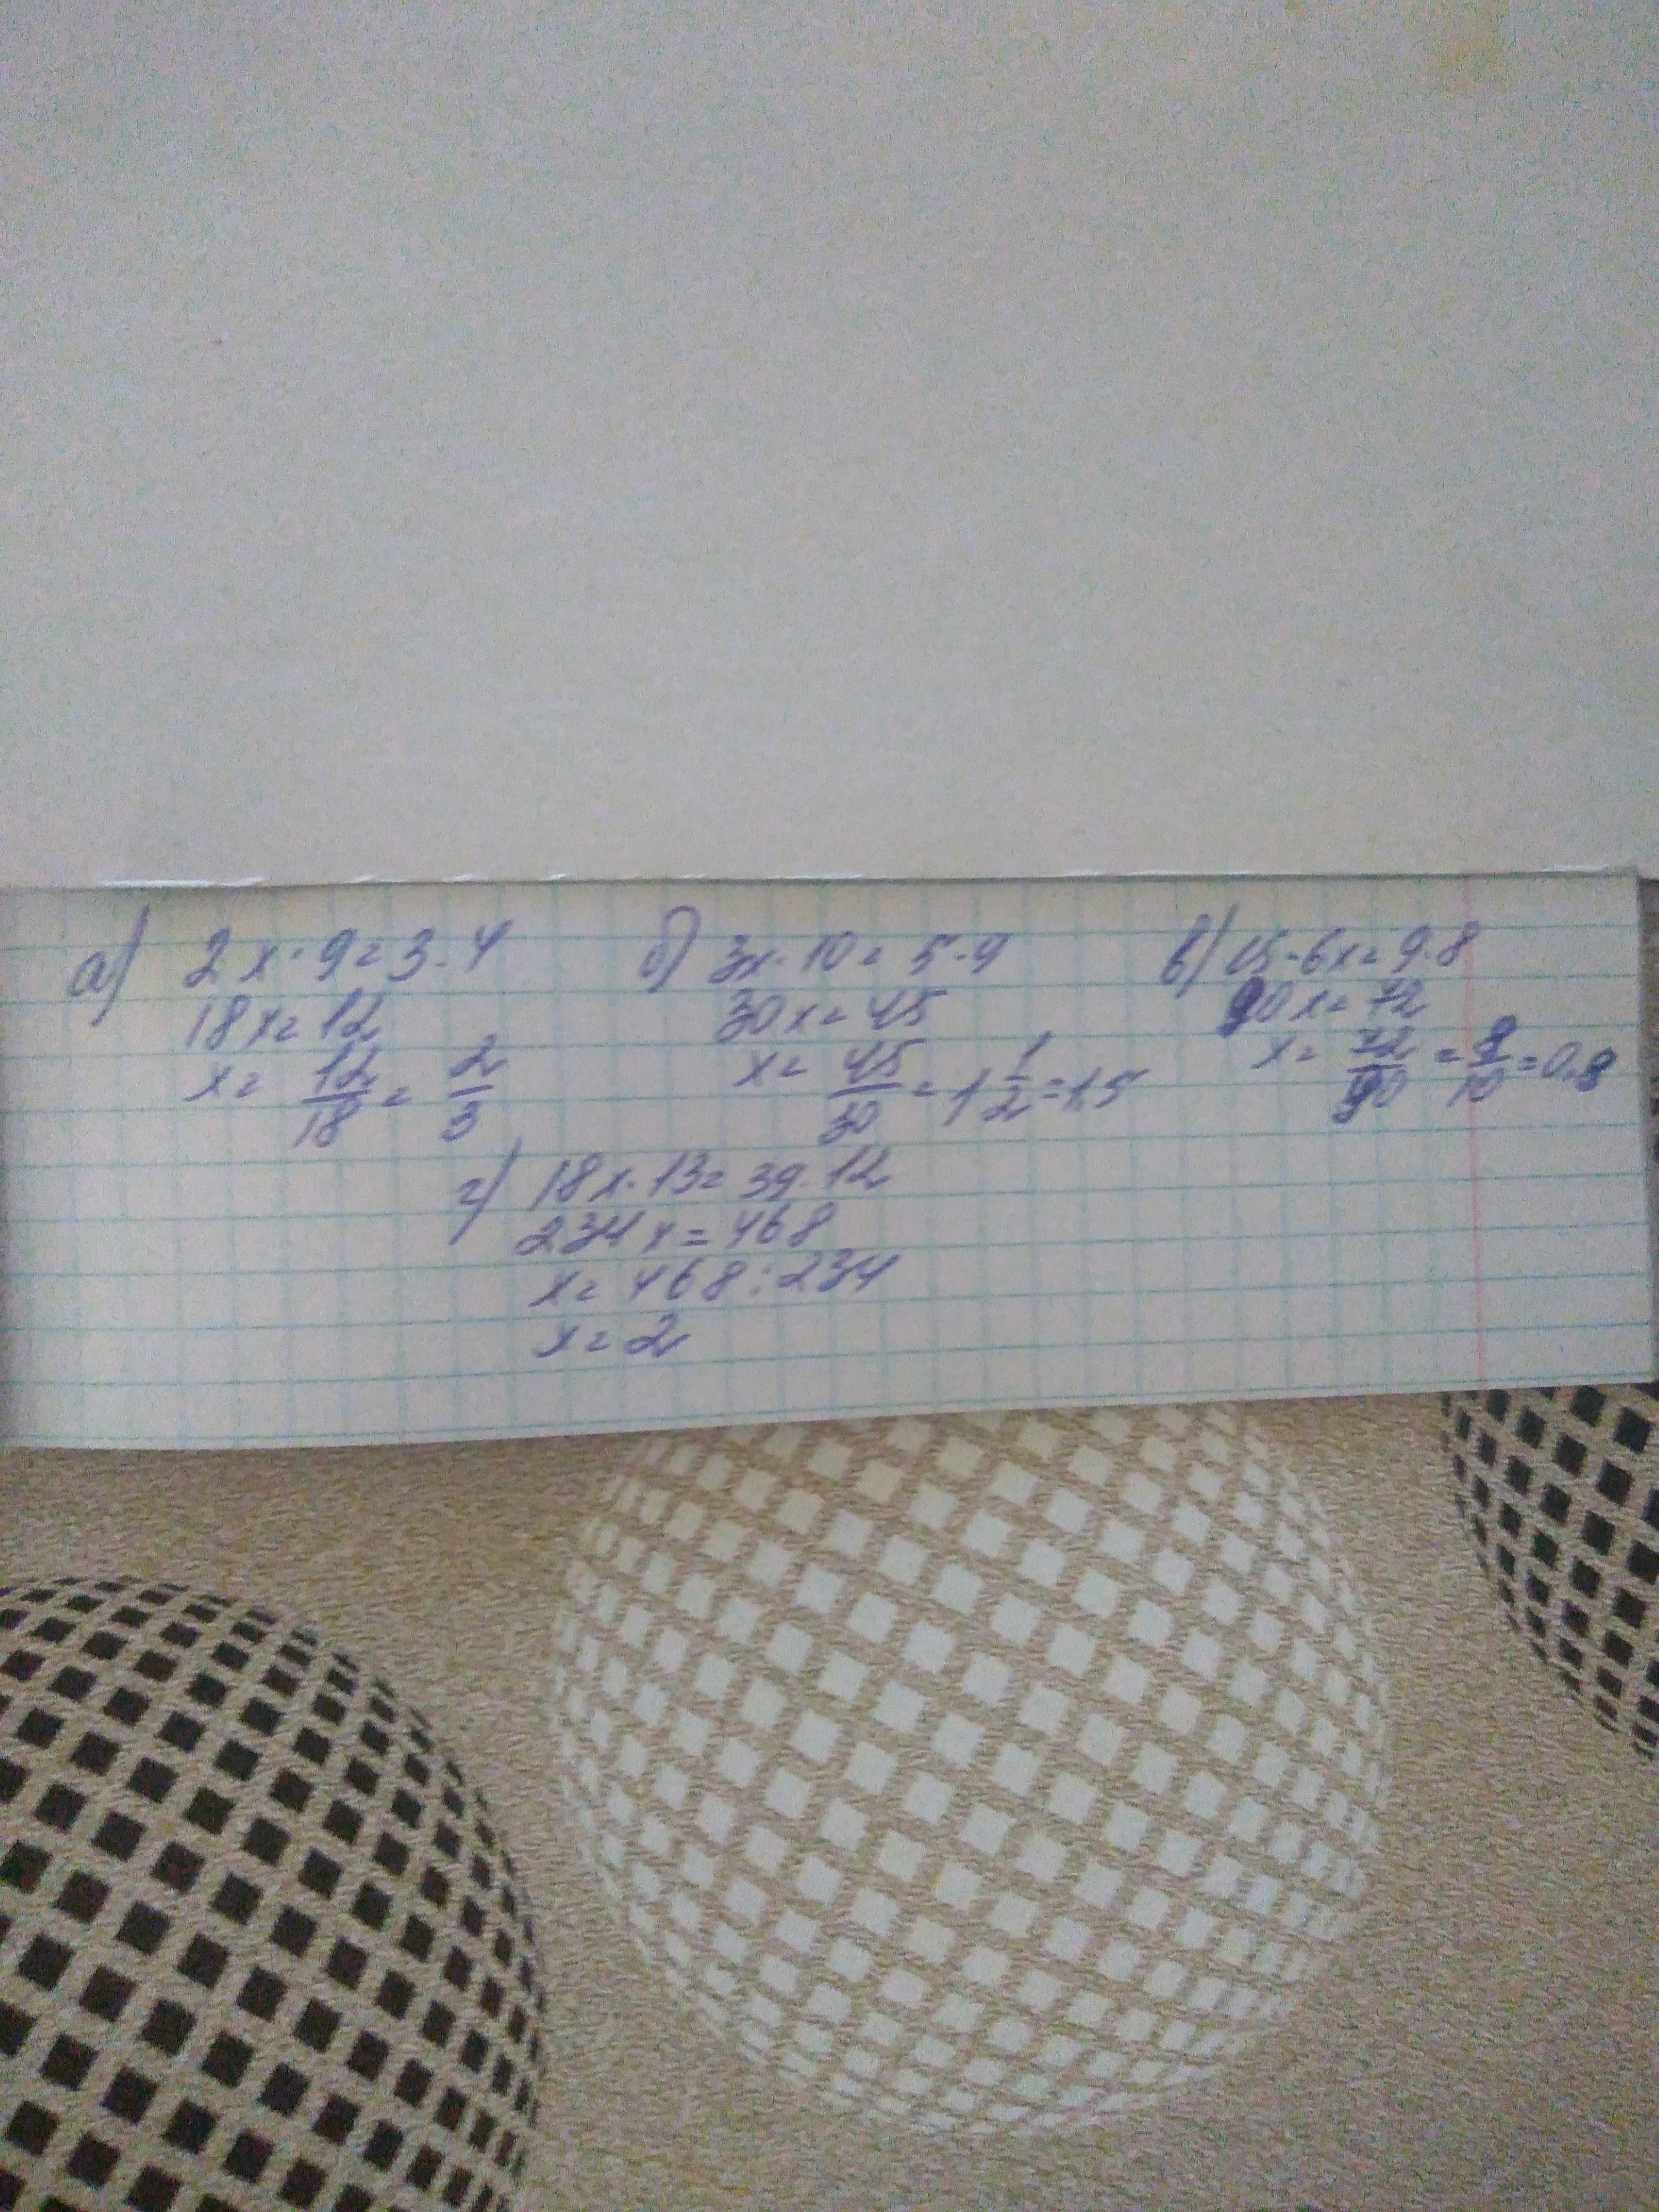 а) 2x·9=3·4
18x=12
x= 12/18 = 2/3
б) 3x·10=5·9
30x=45
x= 45/30 = 1 1/2 = 1,5
в) 15·6x=9·8
90x=72
x= 72/90 = 8/10 = 0,8
г) 18x·13=39·12
234x=468
x=468:234
x=2